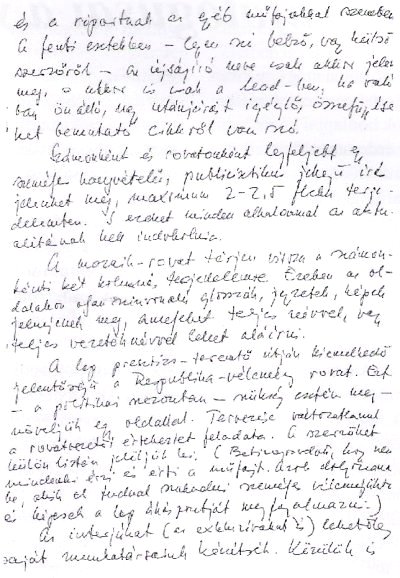 és a riportnak az egyéb műfajokkal szemben
A fenti esetekben – legyen szó belső, vagy külső
szerzőről – az újságíró neve csak akkor jelen
meg, s akkor is csak a lead-ben, ha való
ban önálló, nagy utánjárást igénylő összefüggése
ket bemutató cikkről van szó.
Számonként és rovatonként legfeljebb egy
személyes hangvételű, publicisztikus jellegű írás
jelenhet meg, maximum 2–2,5 flekk terje-
delemben. S ezeket minden alkalommal az aktu-
alitásnak kell indokolnia.
A mozaik-rovat térjen vissza a számon-
kénti két kolumnás terjedelemre. Ezeken az ol-
dalakon olyan színvonalú glosszák, jegyzetek, képek
jelenjenek meg, amelyeket teljes névvel, vagy
teljes vezetéknévvel lehet aláírni.
A lap presztízs-teremtő útján kiemelkedő
jelentőségű a Respublika-vélemény rovat. Ezt
– a politikai szezonban – szükség esetén meg-
növeljük egy oldallal. Tervezése változatlanul
a rovatvezetői értekezlet feladata. A szerzőket
külön listán jelöljük ki. (Bebizonyosodott, hogy nem
mindenki érzi és érti a műfajt. Azok dolgozzanak
be, akik el tudnak szakadni személyes véleményüktől
és képesek a lap álláspontját megfogalmazni.)
Az interjúkat (az exkluzívakat is) lehetőleg
saját munkatársaink készítsék. Kerüljük is